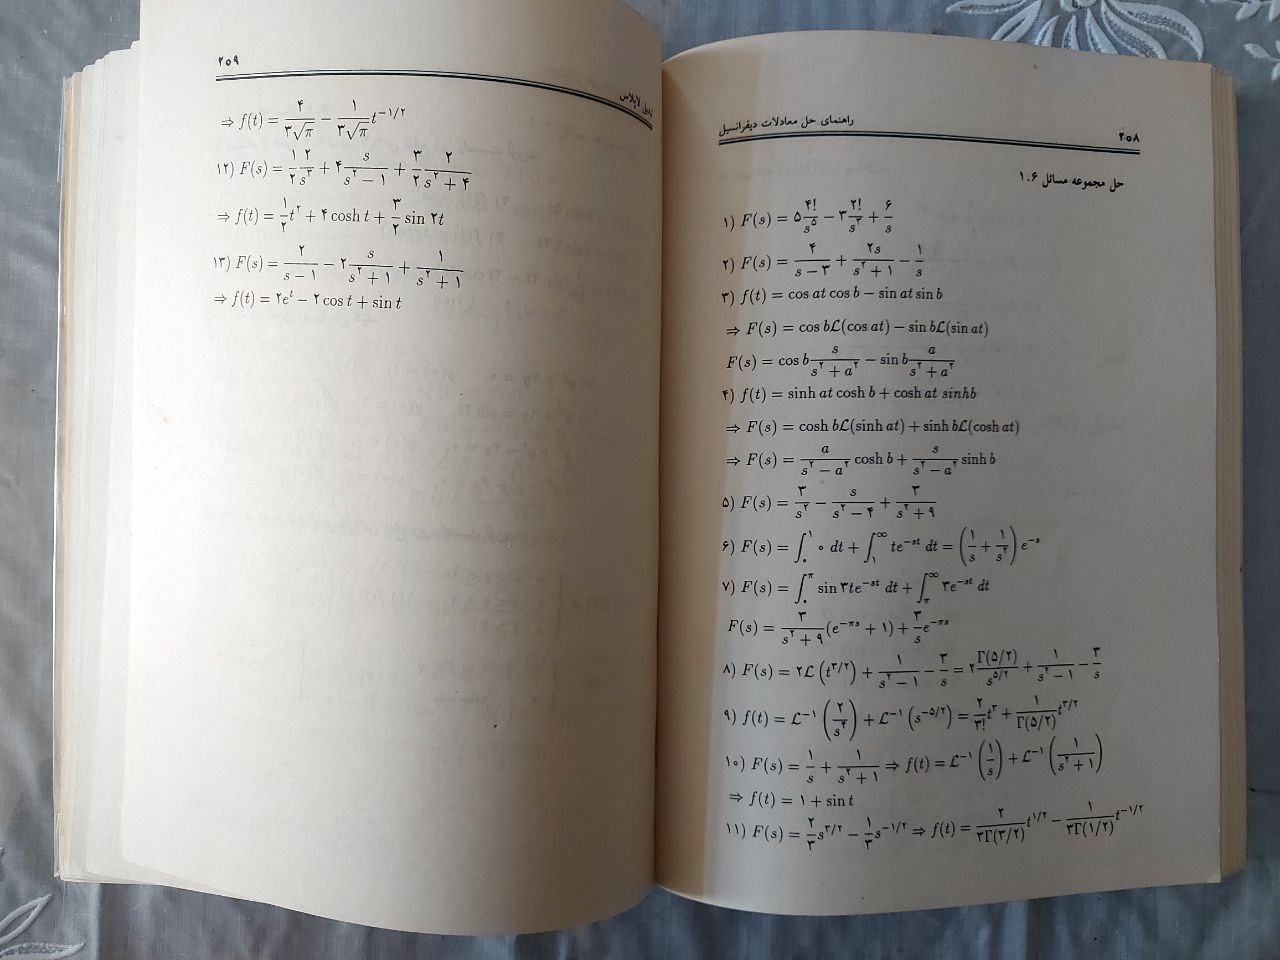 راهنمای حل معادلات دیفرانسیل ۲۵۸
حل مجموعه مسائل ۱.۶
۱) F(s) = ۵ ۴!/s^۵ − ۳ ۲!/s^۳ + ۶/s
۲) F(s) = ۴/(s − ۳) + ۲s/(s^۲ + ۱) − ۱/s
۳) f(t) = cos at cos b − sin at sin b
⇒ F(s) = cos bℒ(cos at) − sin bℒ(sin at)
F(s) = cos b s/(s^۲ + a^۲) − sin b a/(s^۲ + a^۲)
۴) f(t) = sinh at cosh b + cosh at sinhb
⇒ F(s) = cosh bℒ(sinh at) + sinh bℒ(cosh at)
⇒ F(s) = a/(s^۲ − a^۲) cosh b + s/(s^۲ − a^۲) sinh b
۵) F(s) = ۳/s^۲ − s/(s^۲ − ۴) + ۳/(s^۲ + ۹)
۶) F(s) = ∫_۰^۱ ۰ dt + ∫_۱^∞ te^{−st} dt = (۱/s + ۱/s^۲) e^{−s}
۷) F(s) = ∫_۰^π sin ۳te^{−st} dt + ∫_π^∞ ۳e^{−st} dt
F(s) = ۳/(s^۲ + ۹) (e^{−πs} + ۱) + ۳/s e^{−πs}
۸) F(s) = ۲ℒ(t^{۳/۲}) + ۱/(s^۲ − ۱) − ۳/s = ۲ Γ(۵/۲)/s^{۵/۲} + ۱/(s^۲ − ۱) − ۳/s
۹) f(t) = ℒ^{−۱}(۲/s^۴) + ℒ^{−۱}(s^{−۵/۲}) = ۲/۳! t^۳ + ۱/Γ(۵/۲) t^{۳/۲}
۱۰) F(s) = ۱/s + ۱/(s^۲ + ۱) ⇒ f(t) = ℒ^{−۱}(۱/s) + ℒ^{−۱}(۱/(s^۲ + ۱))
⇒ f(t) = ۱ + sin t
۱۱) F(s) = ۲/۳ s^{۳/۲} − ۱/۳ s^{−۱/۲} ⇒ f(t) = ۲/(۳Γ(۳/۲)) t^{۱/۲} − ۱/(۳Γ(۱/۲)) t^{−۱/۲}
تبدیل لاپلاس ۲۵۹
⇒ f(t) = ۴/(۳√π) − ۱/(۳√π) t^{−۱/۲}
۱۲) F(s) = ۱/۲ ۲/s^۳ + ۴ s/(s^۲ − ۱) + ۳/۲ ۲/(s^۲ + ۴)
⇒ f(t) = ۱/۲ t^۲ + ۴ cosh t + ۳/۲ sin ۲t
۱۳) F(s) = ۲/(s − ۱) − ۲ s/(s^۲ + ۱) + ۱/(s^۲ + ۱)
⇒ f(t) = ۲e^t − ۲ cos t + sin t